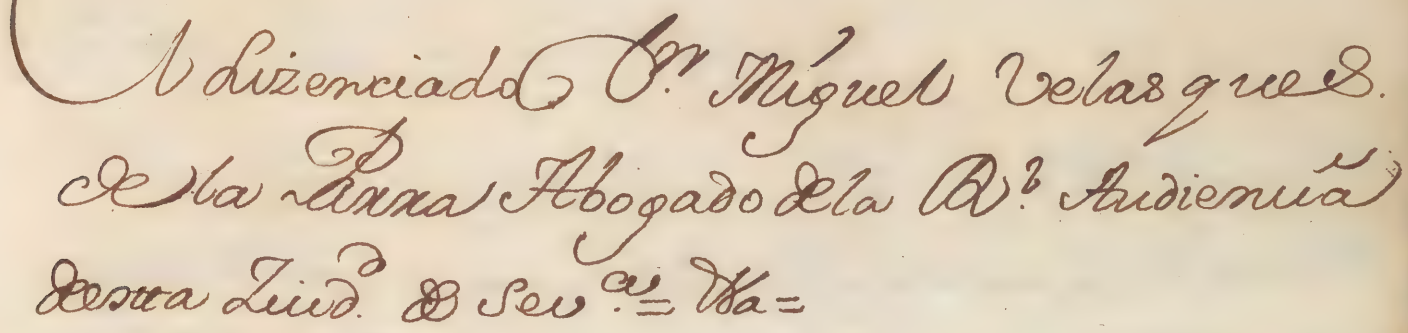 l Lizenciado Dn. Miguel Velasques.
de la Parra Abogado de la Rl. Audiencia
desta Ziud. de Seva.=